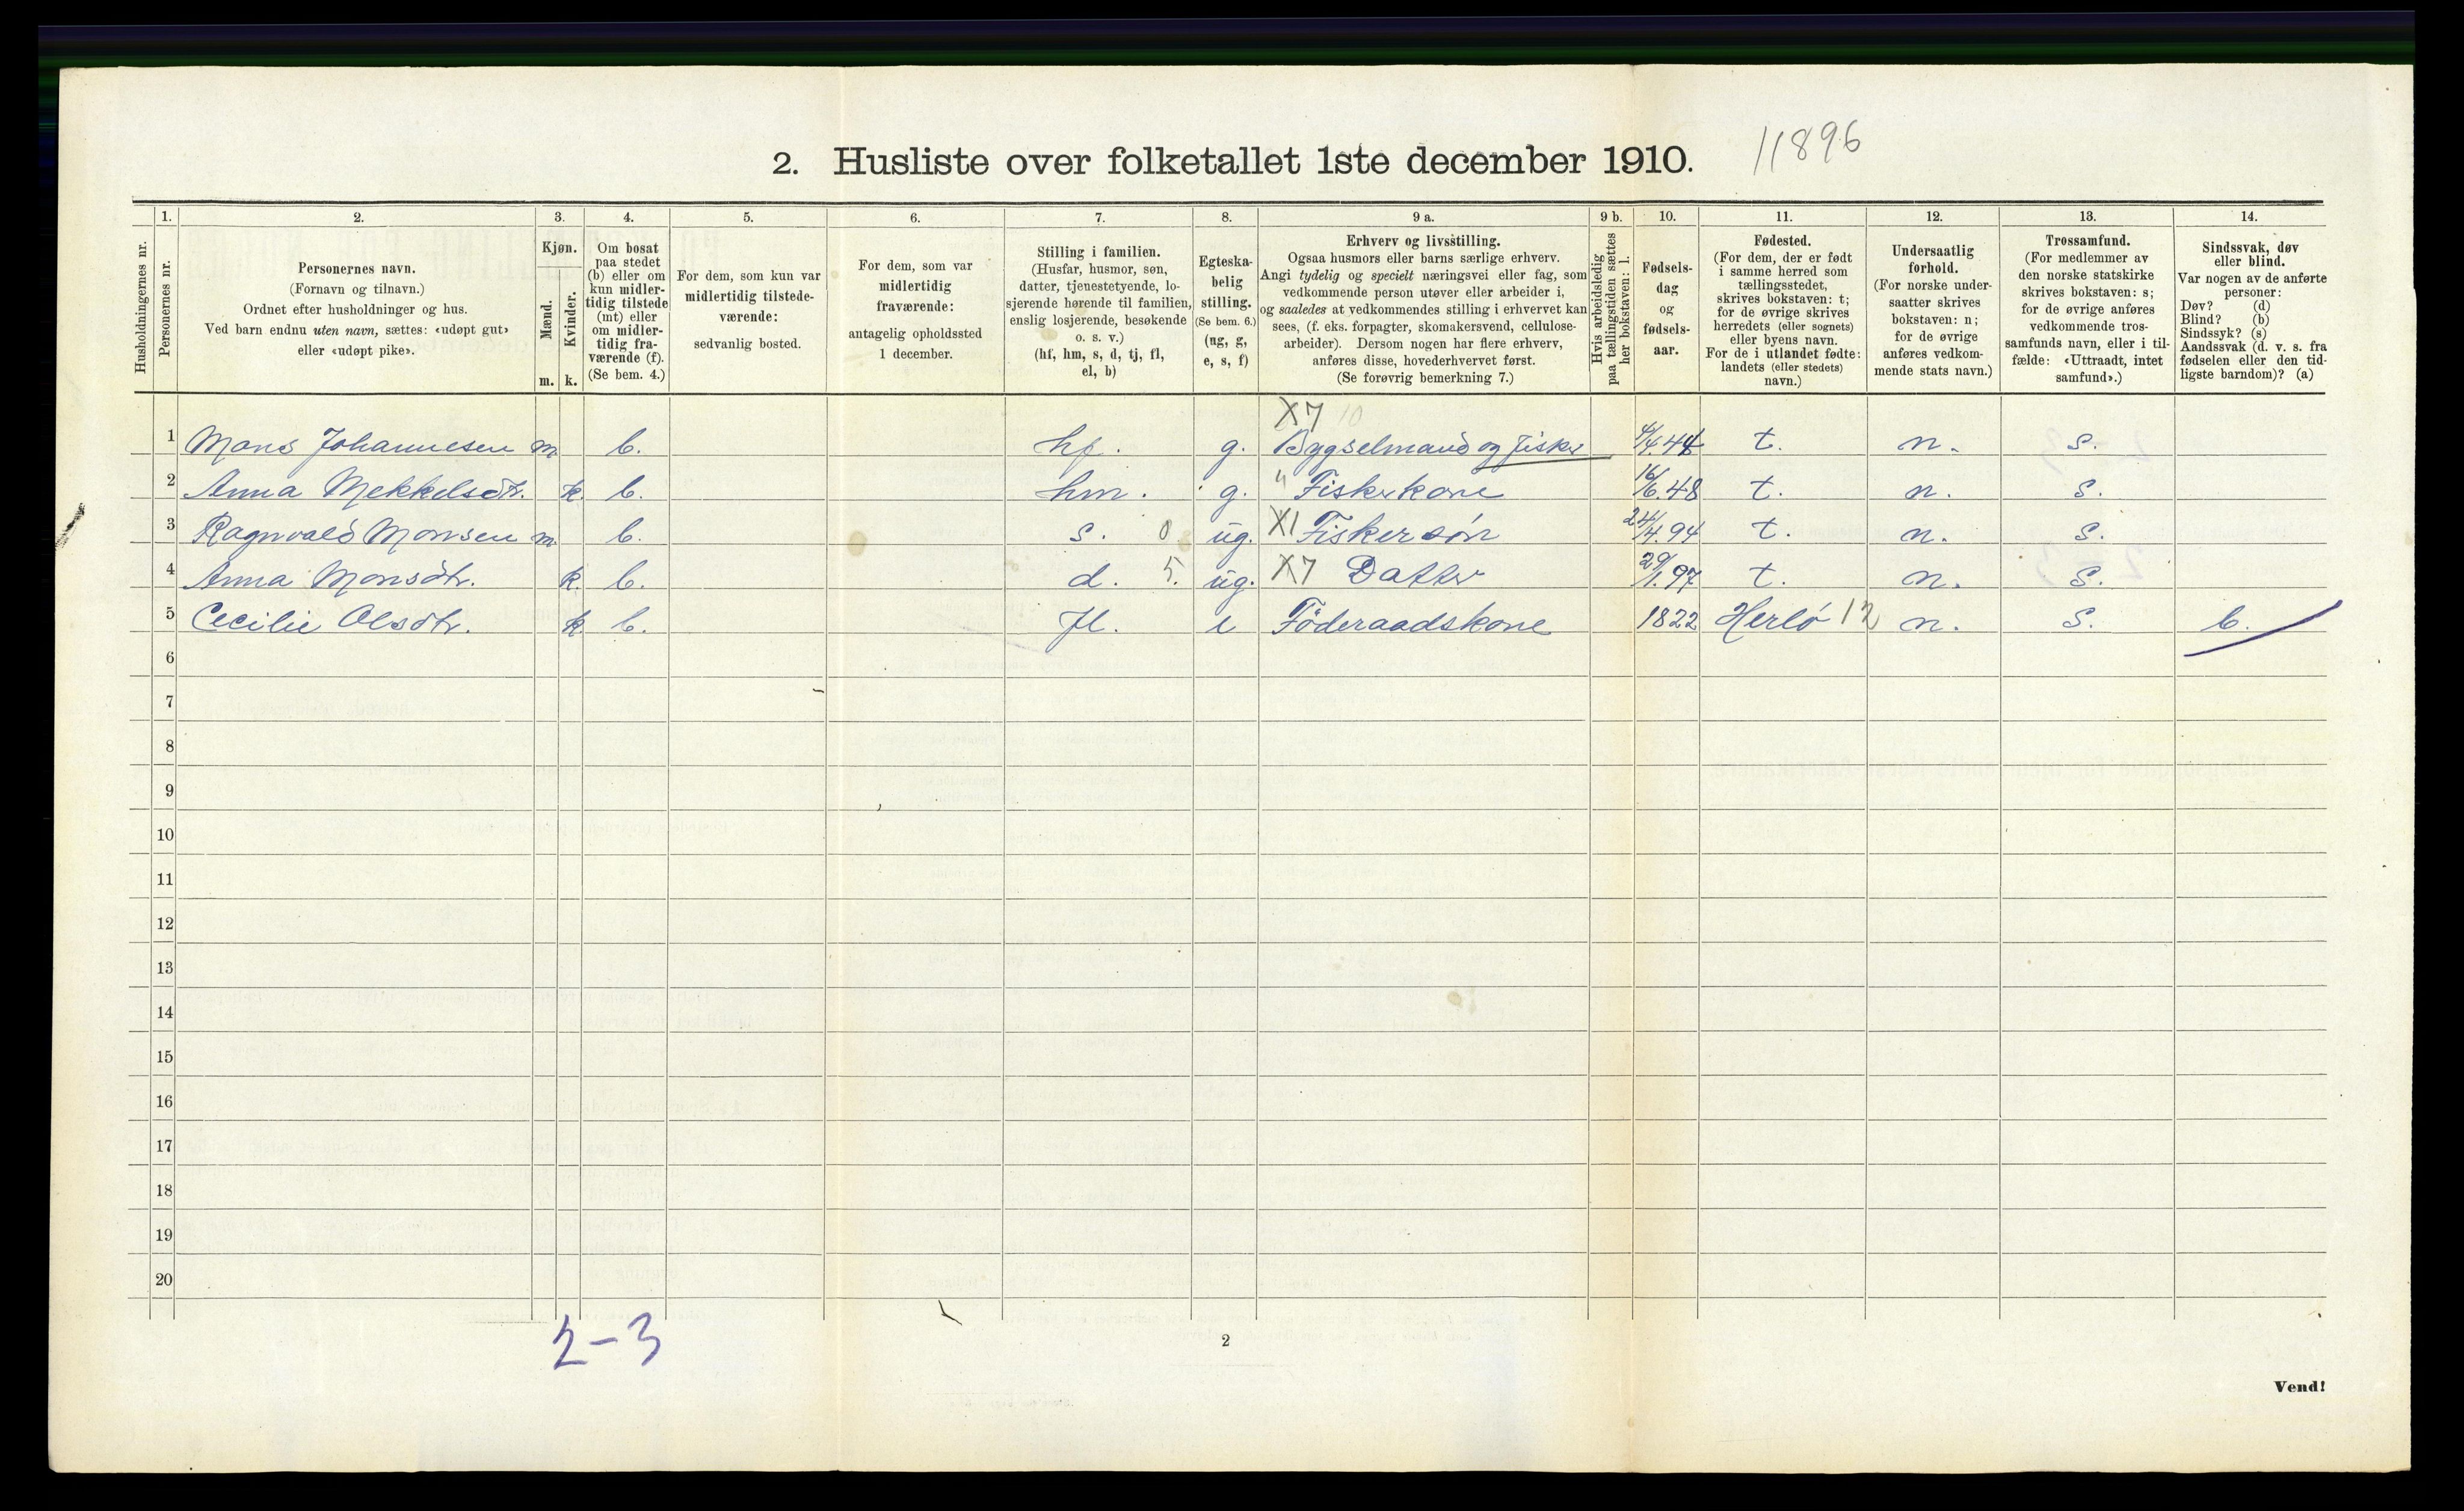 11896
2. Husliste over folketallet 1ste december 1910.
Husholdningernes nr.
1. Personernes nr.
2. Personernes navn.
(Fornavn og tilnavn.)
Ordnet efter husholdninger og hus.
Ved barn endnu uten navn, sættes: «udøpt gut»
eller «udøpt pike».
3. Kjøn.
Mænd. m.
Kvinder. k.
4. Om bosat
paa stedet
(b) eller om
kun midler-
tidig tilstede
(mt) eller
om midler-
tidig fra-
værende (f).
(Se bem. 4.)
5. For dem, som kun var
midlertidig tilstede-
værende:
sedvanlig bosted.
6. For dem, som var
midlertidig
fraværende:
antagelig opholdssted
1 december.
7. Stilling i familien.
(Husfar, husmor, søn,
datter, tjenestetyende, lo-
sjerende hørende til familien,
enslig losjerende, besøkende
o. s. v.)
(hf, hm, s, d, tj, fl,
el, b)
8. Egteska-
belig
stilling.
(Se bem. 6.)
(ug, g,
e, s, f)
9 a. Erhverv og livsstilling.
Ogsaa husmors eller barns særlige erhverv.
Angi tydelig og specielt næringsvei eller fag, som
vedkommende person utøver eller arbeider i,
og saaledes at vedkommendes stilling i erhvervet kan
sees, (f. eks. forpagter, skomakersvend, cellulose-
arbeider). Dersom nogen har flere erhverv,
anføres disse, hovederhvervet først.
(Se forøvrig bemerkning 7.)
9 b. Hvis arbeidsledig
paa tællingstiden sættes
her bokstaven: l.
10. Fødsels-
dag
og
fødsels-
aar.
11. Fødested.
(For dem, der er født
i samme herred som
tællingsstedet,
skrives bokstaven: t;
for de øvrige skrives
herredets (eller sognets)
eller byens navn.
For de i utlandet fødte:
landets (eller stedets)
navn.)
12. Undersaatlig
forhold.
(For norske under-
saatter skrives
bokstaven: n;
for de øvrige
anføres vedkom-
mende stats navn.)
13. Trossamfund.
(For medlemmer av
den norske statskirke
skrives bokstaven: s;
for de øvrige anføres
vedkommende tros-
samfunds navn, eller i til-
fælde: «Uttraadt, intet
samfund».)
14. Sindssvak, døv
eller blind.
Var nogen av de anførte
personer:
Døv? (d)
Blind? (b)
Sindssyk? (s)
Aandssvak (d. v. s. fra
fødselen eller den tid-
ligste barndom)? (a)
X7 10
1 Mons Johannesen m b. hf. g. Bygselmand og fisker 4/4.44 t. n. s.
2 Anna Mekkelsdtr. k b. hm. g. " Fiskerkone 16/6.48 t. n. s.
3 Ragnvald Monsen m b. s. 0 ug. X1 Fiskersøn 24/4.94 t. n. s.
4 Anna Monsdtr. k b. d. 5. ug. X7 Datter 29/1.97 t. n. s.
5 Cecilie Olsdtr. k b. fl. e Föderaadskone 1822 Herlö 12 n. s. b.
6
7
8
9
10
11
12
13
14
15
16
17
18
19
20
2-3
2
Vend!